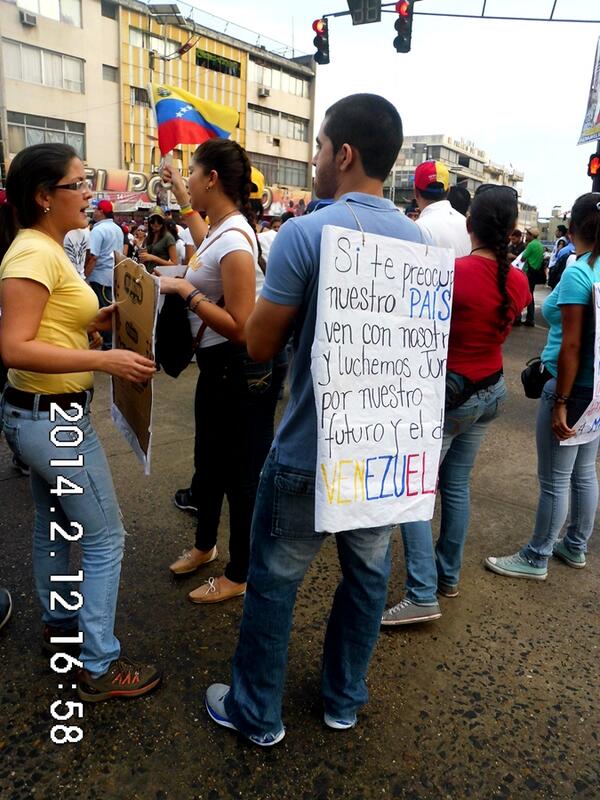 EL PO
Si te preocup
nuestro PAÍS
ven con nosotr
y luchemos Jun
por nuestro
futuro y el d
VENEZUEL
2014.2.12 16:58